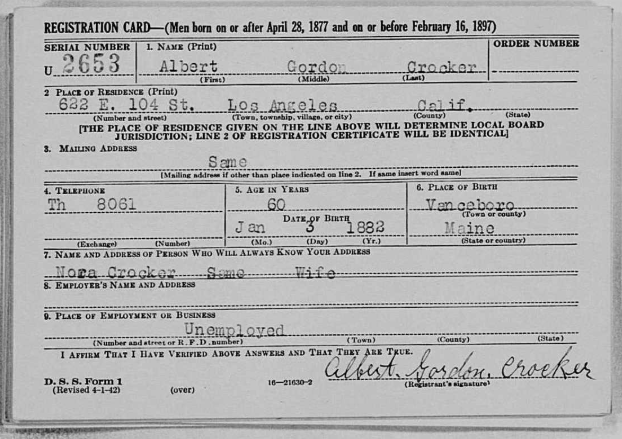 REGISTRATION CARD—(Men born on or after April 28, 1877 and on or before February 16, 1897)
SERIAL NUMBER 1. NAME (Print) ORDER NUMBER
U 2653 Albert Gordon Crocker
(First) (Middle) (Last)
2 PLACE OF RESIDENCE (Print)
622 E. 104 St. Los Angeles Calif.
(Number and street) (Town, township, village, or city) (County) (State)
[THE PLACE OF RESIDENCE GIVEN ON THE LINE ABOVE WILL DETERMINE LOCAL BOARD
JURISDICTION; LINE 2 OF REGISTRATION CERTIFICATE WILL BE IDENTICAL]
3. MAILING ADDRESS
Same
[Mailing address if other than place indicated on line 2. If same insert word same]
4. TELEPHONE 5. AGE IN YEARS 6. PLACE OF BIRTH
Th 8061 60 Vanceboro
DATE OF BIRTH (Town or county)
Jan 3 1882 Maine
(Exchange) (Number) (Mo.) (Day) (Yr.) (State or country)
7. NAME AND ADDRESS OF PERSON WHO WILL ALWAYS KNOW YOUR ADDRESS
Nora Crocker Same Wife
8. EMPLOYER'S NAME AND ADDRESS
9. PLACE OF EMPLOYMENT OR BUSINESS
Unemployed
(Number and street or R. F. D. number) (Town) (County) (State)
I AFFIRM THAT I HAVE VERIFIED ABOVE ANSWERS AND THAT THEY ARE TRUE.
Albert. Gordon. Crocker
D. S. S. Form 1 16—21630-2 (Registrant's signature)
(Revised 4-1-42) (over)